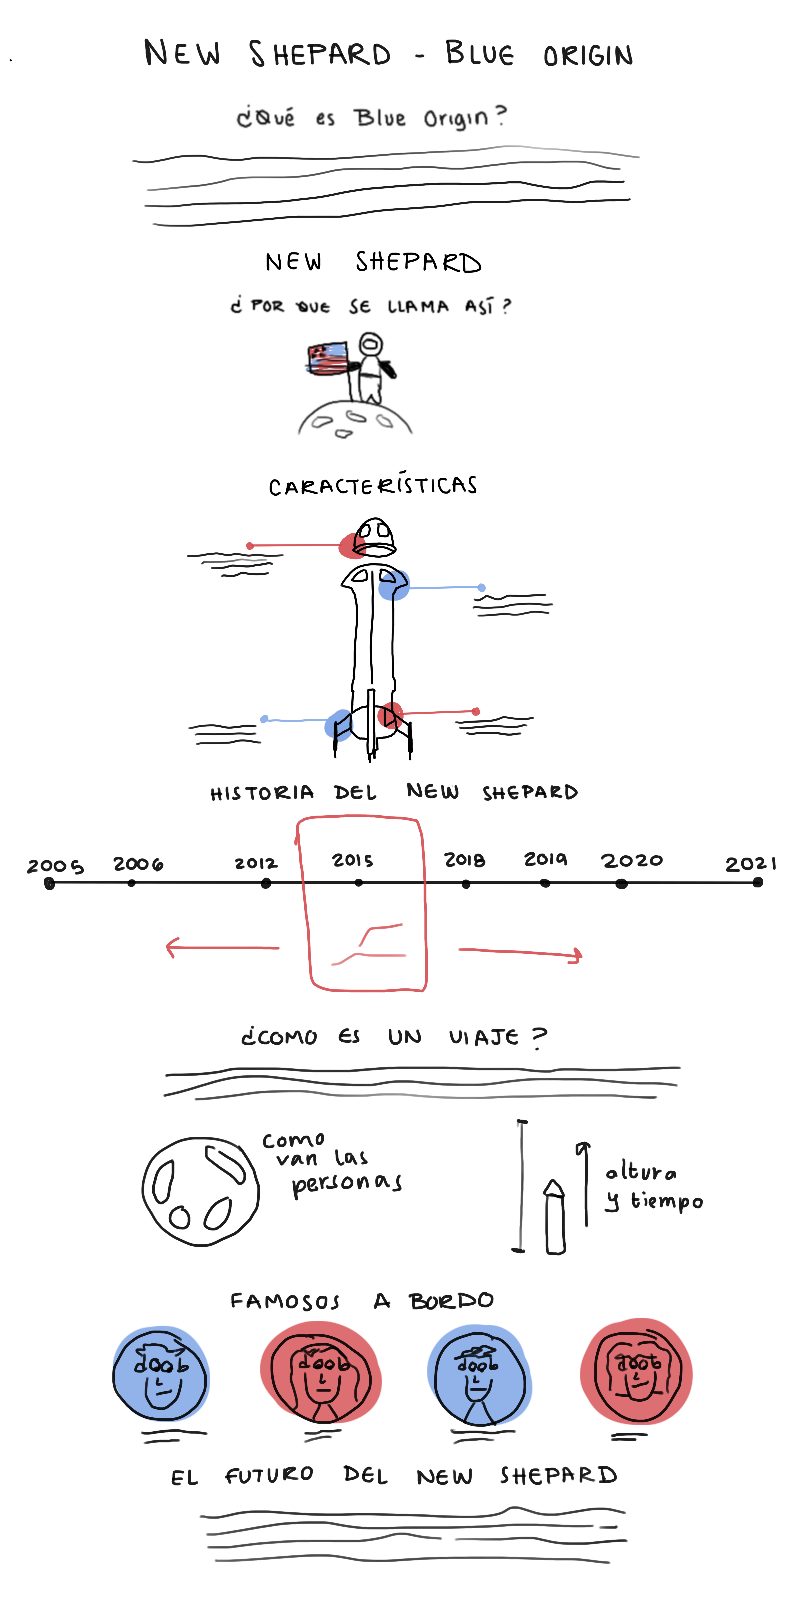 NEW SHEPARD - BLUE ORIGIN
¿Qué es Blue Origin?
NEW SHEPARD
¿POR QUE SE LLAMA ASÍ?
CARACTERÍSTICAS
HISTORIA DEL NEW SHEPARD
2005 2006 2012 2015 2018 2019 2020 2021
¿COMO ES UN VIAJE?
como
van las
personas
altura
y tiempo
FAMOSOS A BORDO
EL FUTURO DEL NEW SHEPARD